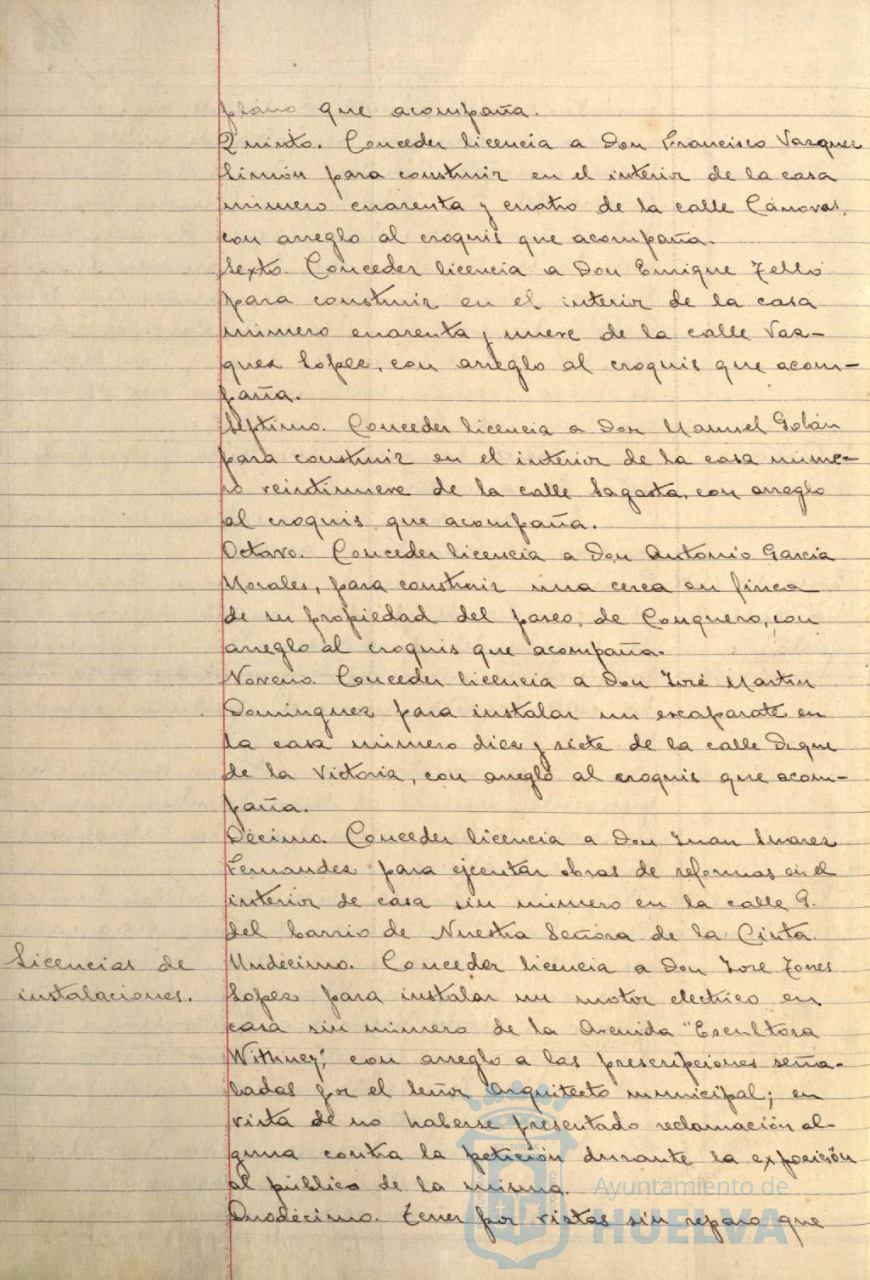 plano que acompaña.
Quinto. Conceder licencia a Don Francisco Vazquez
Simón para construir en el interior de la casa
número cuarenta y cuatro de la calle Cánovas,
con arreglo al croquis que acompaña.
Sexto. Conceder licencia a Don Enrique Tello
para construir en el interior de la casa
número cuarenta y nueve de la calle Vaz-
quez Lopez, con arreglo al croquis que acom-
paña.
Septimo. Conceder licencia a Don Manuel
para construir en el interior de la casa núme-
ro veintinueve de la calle Sagasta, con arreglo
al croquis que acompaña.
Octavo. Conceder licencia a Don Antonio Garcia
Morales, para construir una cerca en finca
de su propiedad del paseo de Conquero, con
arreglo al croquis que acompaña.
Noveno. Conceder licencia a Don José Martin
Dominguez para instalar un escaparate en
la casa número diez y siete de la calle Duque
de la Victoria, con arreglo al croquis que acom-
paña.
Décimo. Conceder licencia a Don Juan Suarez
Fernandez para ejecutar obras de reformas en el
interior de casa sin número en la calle G.
del barrio de Nuestra Señora de la Cinta.
Licencias de
instalaciones.
Undécimo. Conceder licencia a Don José Torres
Lopez para instalar un motor electrico en
casa sin número de la Avenida "Escultora
Withney", con arreglo a las prescripciones seña-
ladas por el Señor Arquitecto municipal; en
vista de no haberse presentado reclamación al-
guna contra la petición durante la exposición
al público de la misma.
Duodécimo. Tener por vistas sin reparo que
Ayuntamiento de
HUELVA